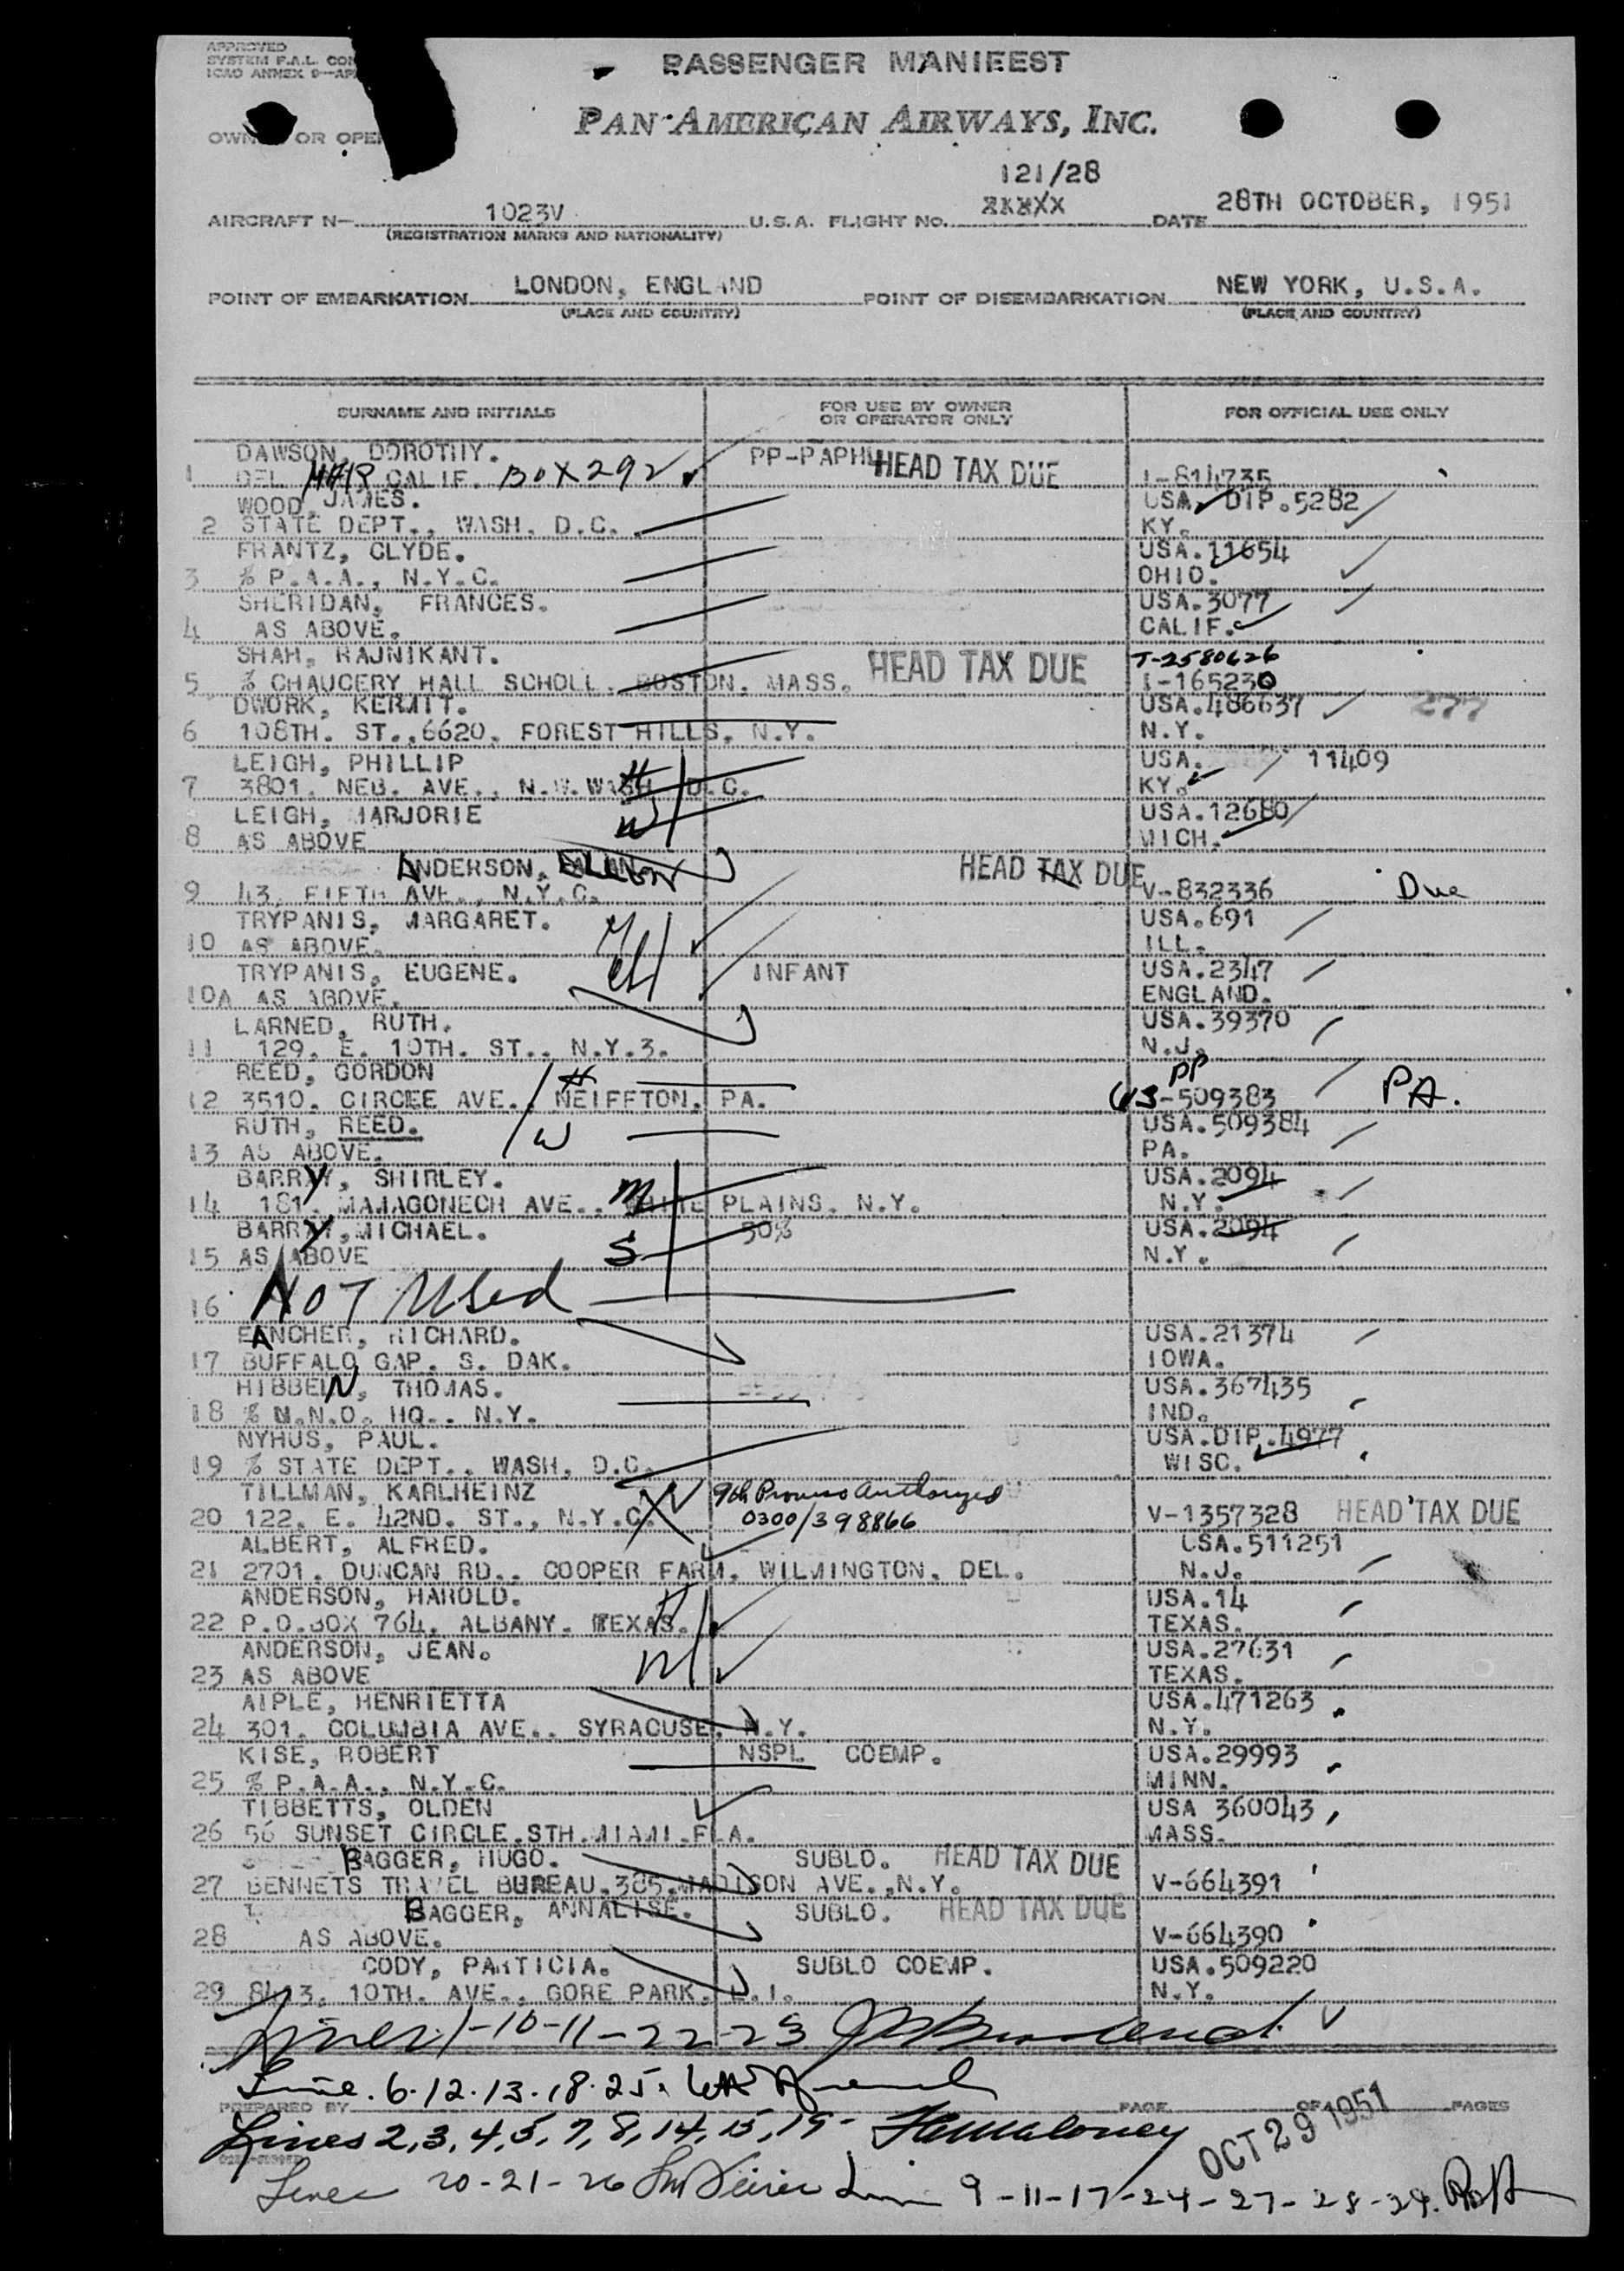 APPROVED
SYSTEM F.A.L. CO
ICAO ANNEX 9—AP
PASSENGER MANIFEST
PAN AMERICAN AIRWAYS, INC.
OWN OR OPE
121/28
AIRCRAFT N— 1023V U.S.A. FLIGHT NO. XXXXX DATE 28TH OCTOBER, 1951
(REGISTRATION MARKS AND NATIONALITY)
POINT OF EMBARKATION LONDON, ENGLAND POINT OF DISEMBARKATION NEW YORK, U.S.A.
(PLACE AND COUNTRY) (PLACE AND COUNTRY)
SURNAME AND INITIALS FOR USE BY OWNER OR OPERATOR ONLY FOR OFFICIAL USE ONLY
DAWSON, DOROTHY. PP-PAPHU HEAD TAX DUE
1 DEL MAR, CALIF. BOX 292 I-814735
WOOD, JAMES. USA. DIP.5282
2 STATE DEPT., WASH. D.C. KY.
FRANTZ, CLYDE. USA.11654
3 % P.A.A., N.Y.C. OHIO.
SHERIDAN, FRANCES. USA.3077
4 AS ABOVE. CALIF.
SHAH, RAJNIKANT. HEAD TAX DUE T-2580626
5 % CHAUCERY HALL SCHOLL. BOSTON. MASS. I-165230
DWORK, KERMIT. USA.486637 277
6 108TH. ST.,6620. FOREST HILLS. N.Y. N.Y.
LEIGH, PHILLIP H USA. 11409
7 3801. NEB. AVE., N.W.WASH D.C. KY.
LEIGH, MARJORIE W USA.12680
8 AS ABOVE MICH.
ANDERSON, HEAD TAX DUE
9 43, FIFTH AVE., N.Y.C. V-832336 Due
TRYPANIS, MARGARET. USA.691
10 AS ABOVE. ILL.
TRYPANIS, EUGENE. INFANT USA.2347
10A AS ABOVE. ENGLAND.
LARNED, RUTH. USA.39370
11 129. E. 10TH. ST., N.Y.3. N.J.
REED, GORDON H PP
12 3510. CIRCLE AVE., NEIFFTON, PA. US-509383 PA.
RUTH, REED. W USA.509384
13 AS ABOVE. PA.
BARRY, SHIRLEY. M USA.2094
14 181. MAMAGONECH AVE., WHITE PLAINS. N.Y. N.Y.
BARRY, MICHAEL. S 50% USA.2094
15 AS ABOVE N.Y.
16 NOT Used
FANCHER, RICHARD. USA.21374
17 BUFFALO GAP. S. DAK. IOWA.
HIBBEN, THOMAS. USA.367435
18 % N.N.O. HQ.. N.Y. IND.
NYHUS, PAUL. USA.DIP.4977
19 % STATE DEPT., WASH. D.C. WISC.
TILLMAN, KARLHEINZ 9th Proviso Authorized
20 122. E. 42ND. ST., N.Y.C. 0300/398866 V-1357328 HEAD TAX DUE
ALBERT, ALFRED. USA.511251
21 2701. DUNCAN RD.. COOPER FARM. WILMINGTON. DEL. N.J.
ANDERSON, HAROLD. USA.14
22 P.O.BOX 764. ALBANY. TEXAS. TEXAS.
ANDERSON, JEAN. USA.27631
23 AS ABOVE TEXAS.
AIPLE, HENRIETTA USA.471263
24 301. COLUMBIA AVE.. SYRACUSE. N.Y. N.Y.
KISE, ROBERT NSPL COEMP. USA.29993
25 % P.A.A., N.Y.C. MINN.
TIBBETTS, OLDEN USA 360043
26 56 SUNSET CIRCLE.STH.MIAMI.FLA. MASS.
BAGGER, HUGO. SUBLO. HEAD TAX DUE
27 BENNETS TRAVEL BUREAU.385.MADISON AVE.,N.Y. V-664391
BAGGER, ANNALISE. SUBLO. HEAD TAX DUE
28 AS ABOVE. V-664390
CODY, PARTICIA. SUBLO COEMP. USA.509220
29 8413. 10TH. AVE., GORE PARK. L.I. N.Y.
Lines 1-10-11-22-23
Line. 6.12.13.18.25.
PREPARED BY PAGE OF PAGES
Lines 2,3,4,5,7,8,14,15,19- Maloney OCT 29 1951
Lines 20-21-26 Lines 9-11-17-24-27-28-29.